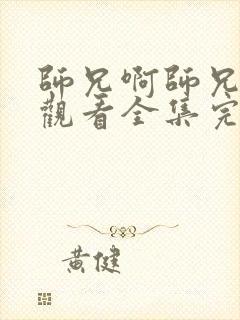 師兄啊師兄
觀看全集完
黃健